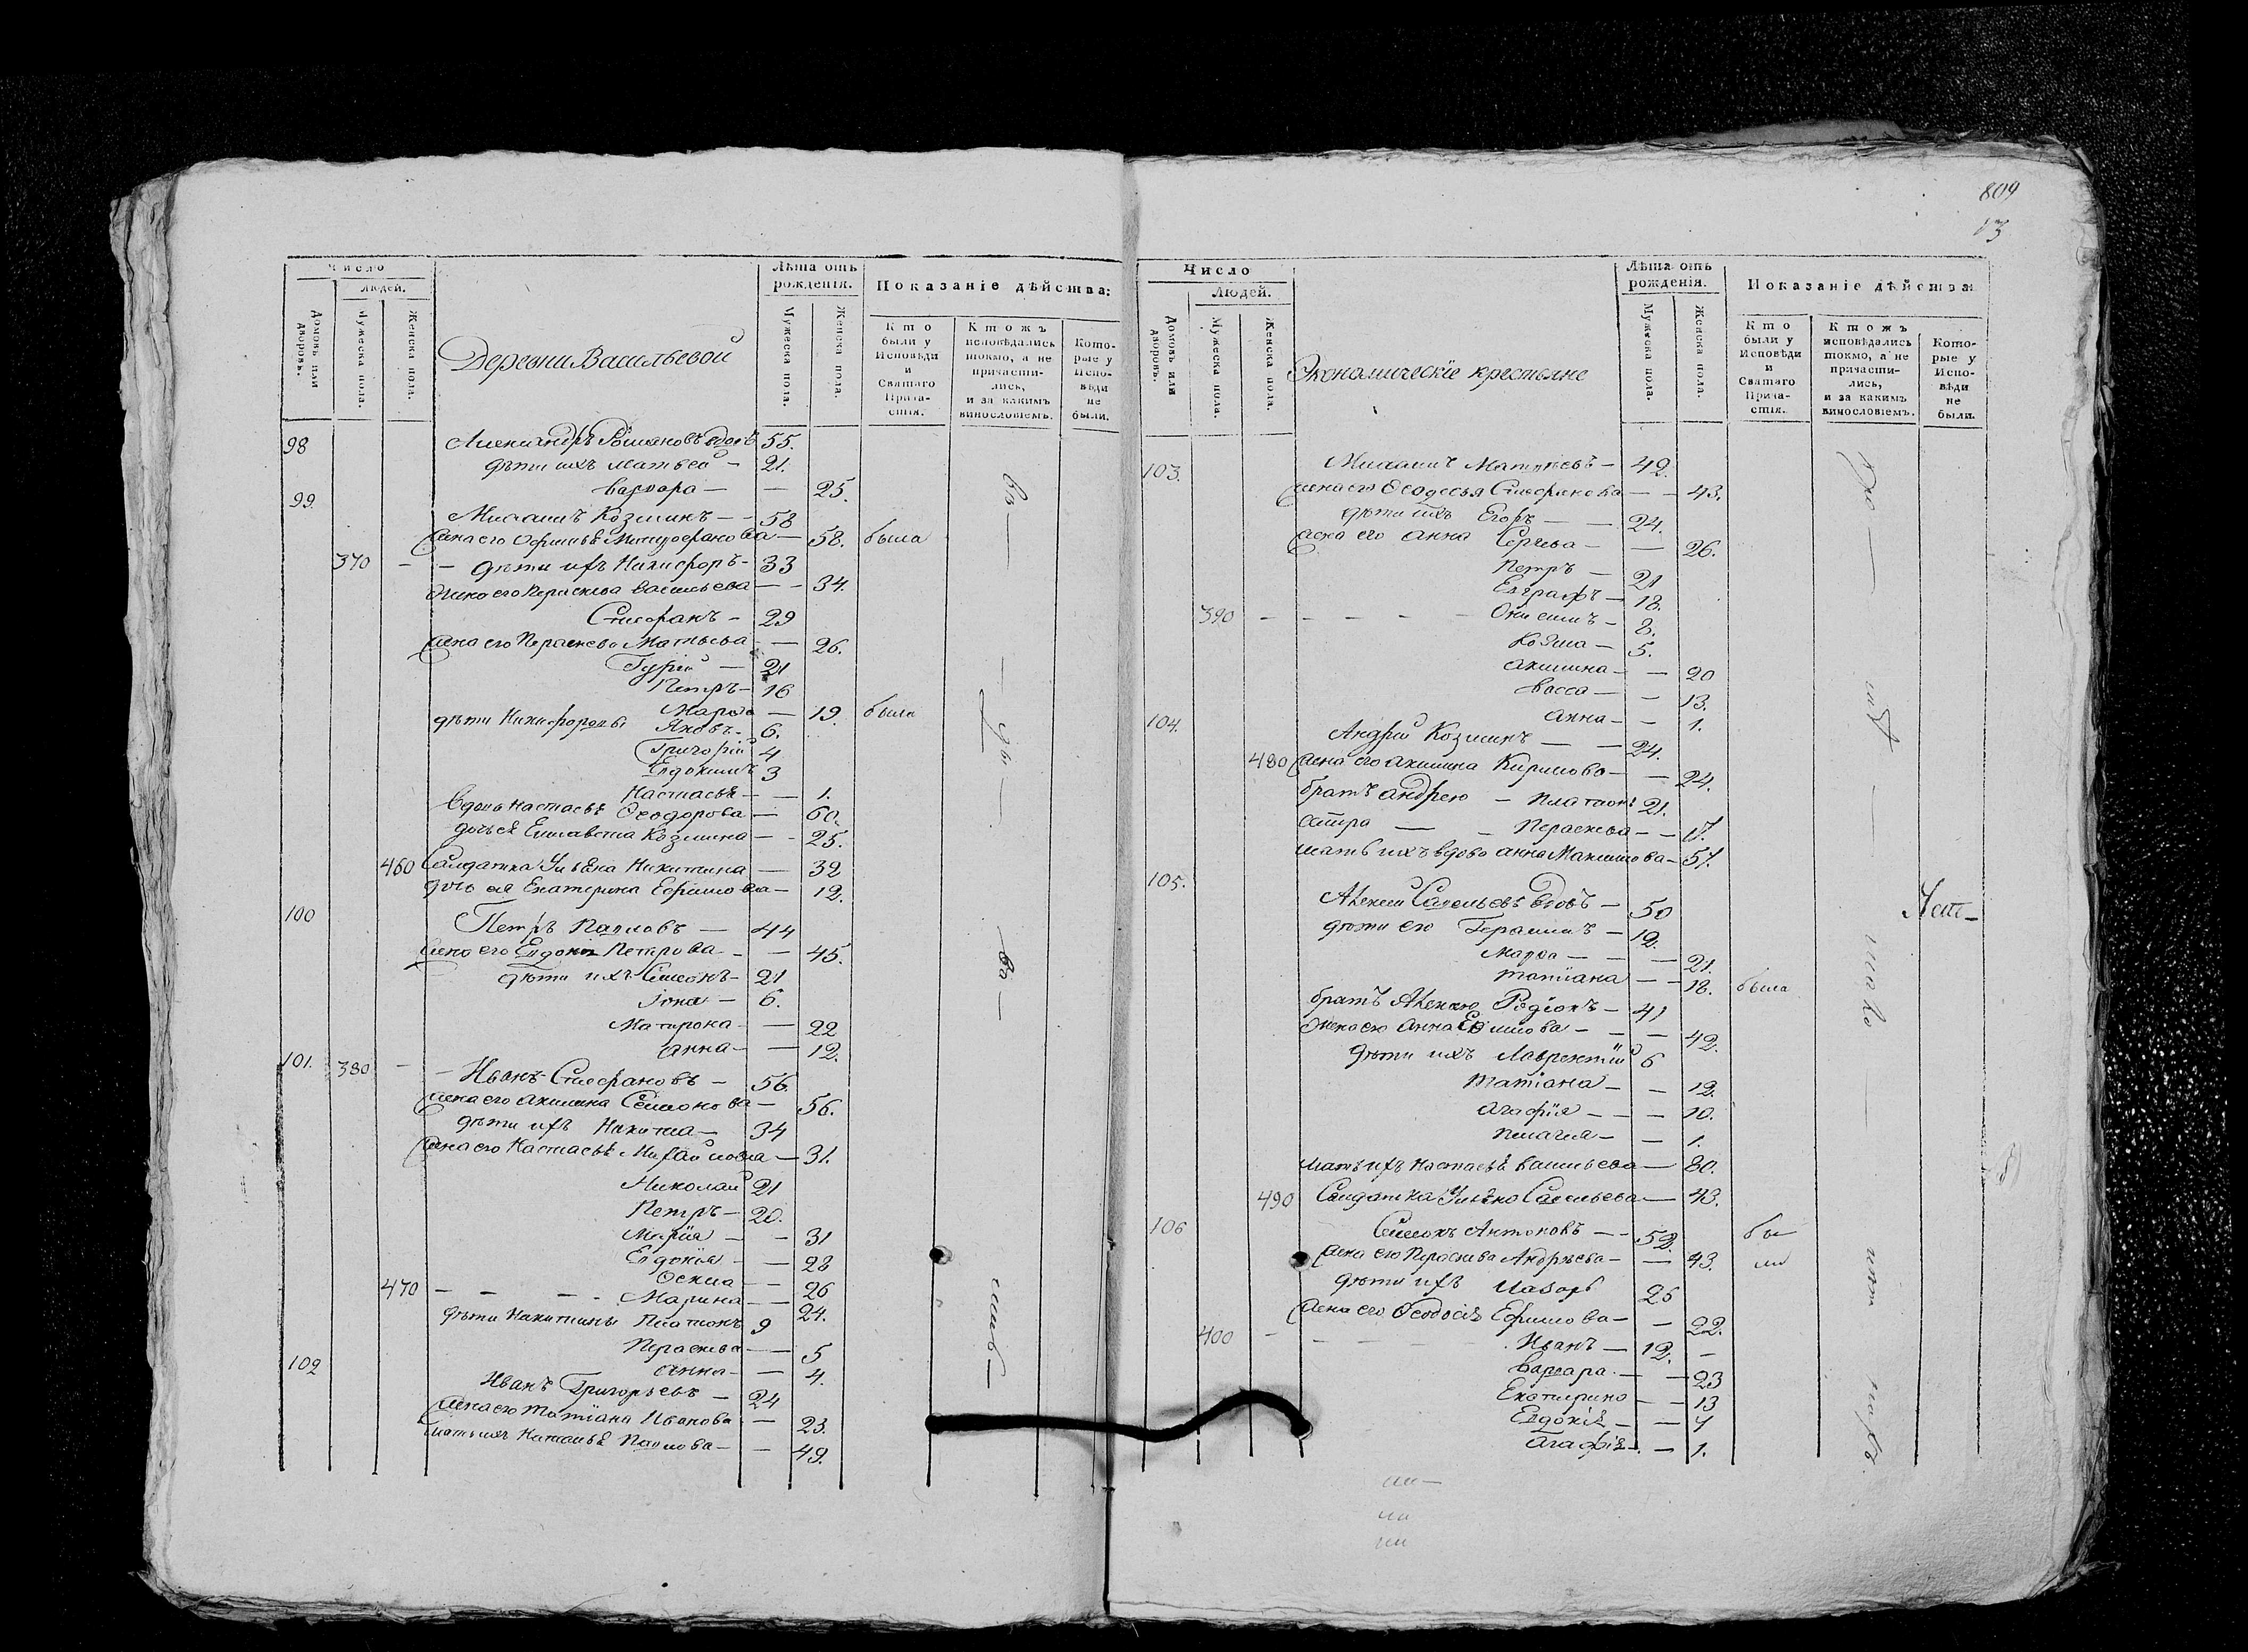 809
13
Число
людей.
Домовъ или дворовъ.
Мужеска пола.
Женска пола.
Деревни Васильевой
Лѣта отъ рожденія.
Мужеска пола.
Женска пола.
Показаніе дѣйства:
Кто были у Исповѣди и Святаго Прича-стія.
Ктожъ исповѣдались токмо, а не причасти-лись, и за какимъ винословіемъ.
Кото-рые у Испо-вѣди не были.
98 Александръ вдовъ 55.
дѣти ихъ Матвей - 21.
Варвара - - 25.
99. Михаилъ Козминъ - - 58
жена его Офимья - 58. была
370 - - дѣти ихъ Никифоръ - 33
жена его Параскева Васильева - - 34.
Стефанъ - 29
жена его Параскева Матвеева - 26.
Гурій - 21
Петръ - 16
Марѳа - 19. была
дѣти Никифоровы Яковъ - 6.
Григорій 4
Евдокимъ 3
Настасья - - 1.
вдова Настасья Ѳеодорова - 60.
дочь ея Елисавета Козмина - - 25.
460 Салдатка Ульяна Никитина - 32
дочь ея Екатерина Ефимова - 12.
100 Петръ Павловъ - 44
жена его Евдокія Петрова - - 45.
дѣти ихъ Симеонъ - 21
Іона - 6.
Матрона - - 22
Анна - - 12.
101. 380 - - Иванъ Стефановъ - 56.
жена его Акилина Семенова - 56.
дѣти ихъ Никита - 34
жена его Настасья Михайлова - 31.
Николай 21
Петръ - 20.
Марія - - 31
Евдокія - - 28
Оекла - - 26
470 - - - - Марина - - 24.
дѣти Никитины Платонъ 9
Параскева - - 5
Анна - - 4.
102 Иванъ Григорьевъ - 24
жена его Татіана Иванова - 23.
мать ихъ Наталья Павлова - - 49.
Число
Людей.
Домовъ или дворовъ.
Мужеска пола.
Женска пола.
Экономическіе крестьяне
Лѣта отъ рожденія.
Мужеска пола.
Женска пола.
Показаніе дѣйства:
Кто были у Исповѣди и Святаго Прича-стія.
Ктожъ исповѣдались токмо, а не причасти-лись, и за какимъ винословіемъ.
Кото-рые у Испо-вѣди не были.
103. Михаилъ Матвѣевъ - 42.
жена его Ѳеодосья Стефанова - - 43.
дѣти ихъ Егоръ - - 24.
жена его Анна Сергѣева - - 26.
Петръ - 21
Евграфъ - 18.
390 - - - - - Онисимъ - 8.
Козма - 5.
Акилина - - 20
Васса - - 13.
Анна - - 1.
104. Андрей Козминъ - - 24.
480 жена его Акилина Кирилова - - 24.
братъ Андрею - Платонъ 21.
сестра - - Параскева - - 17.
мать ихъ вдова Анна Максимова - 57.
105. Алексей Савельевъ вдовъ - 50
дѣти его Герасимъ - 19.
Марѳа - - - 21.
Татіана - - 18. была
братъ Алексею Родіонъ - 41
жена его Анна Ефимова - - - 42.
дѣти ихъ Лаврентій 6
Татіана - - 12.
Агафія - - - 10.
Пелагея - - 1.
мать ихъ Настасья Васильева - 80.
490 Салдатка Ульяна Савельева - 43.
106 Симеонъ Антоновъ - - 52. бы-
жена его Параскева Андрѣева - - 43. ли
дѣти ихъ Назаръ 25
жена его Ѳеодосія Ефимова - - 22.
400 - - - Иванъ - 12. -
Варвара - - 23
Екатерина - - 13
Евдокія - - 4
Агафія - - 1.